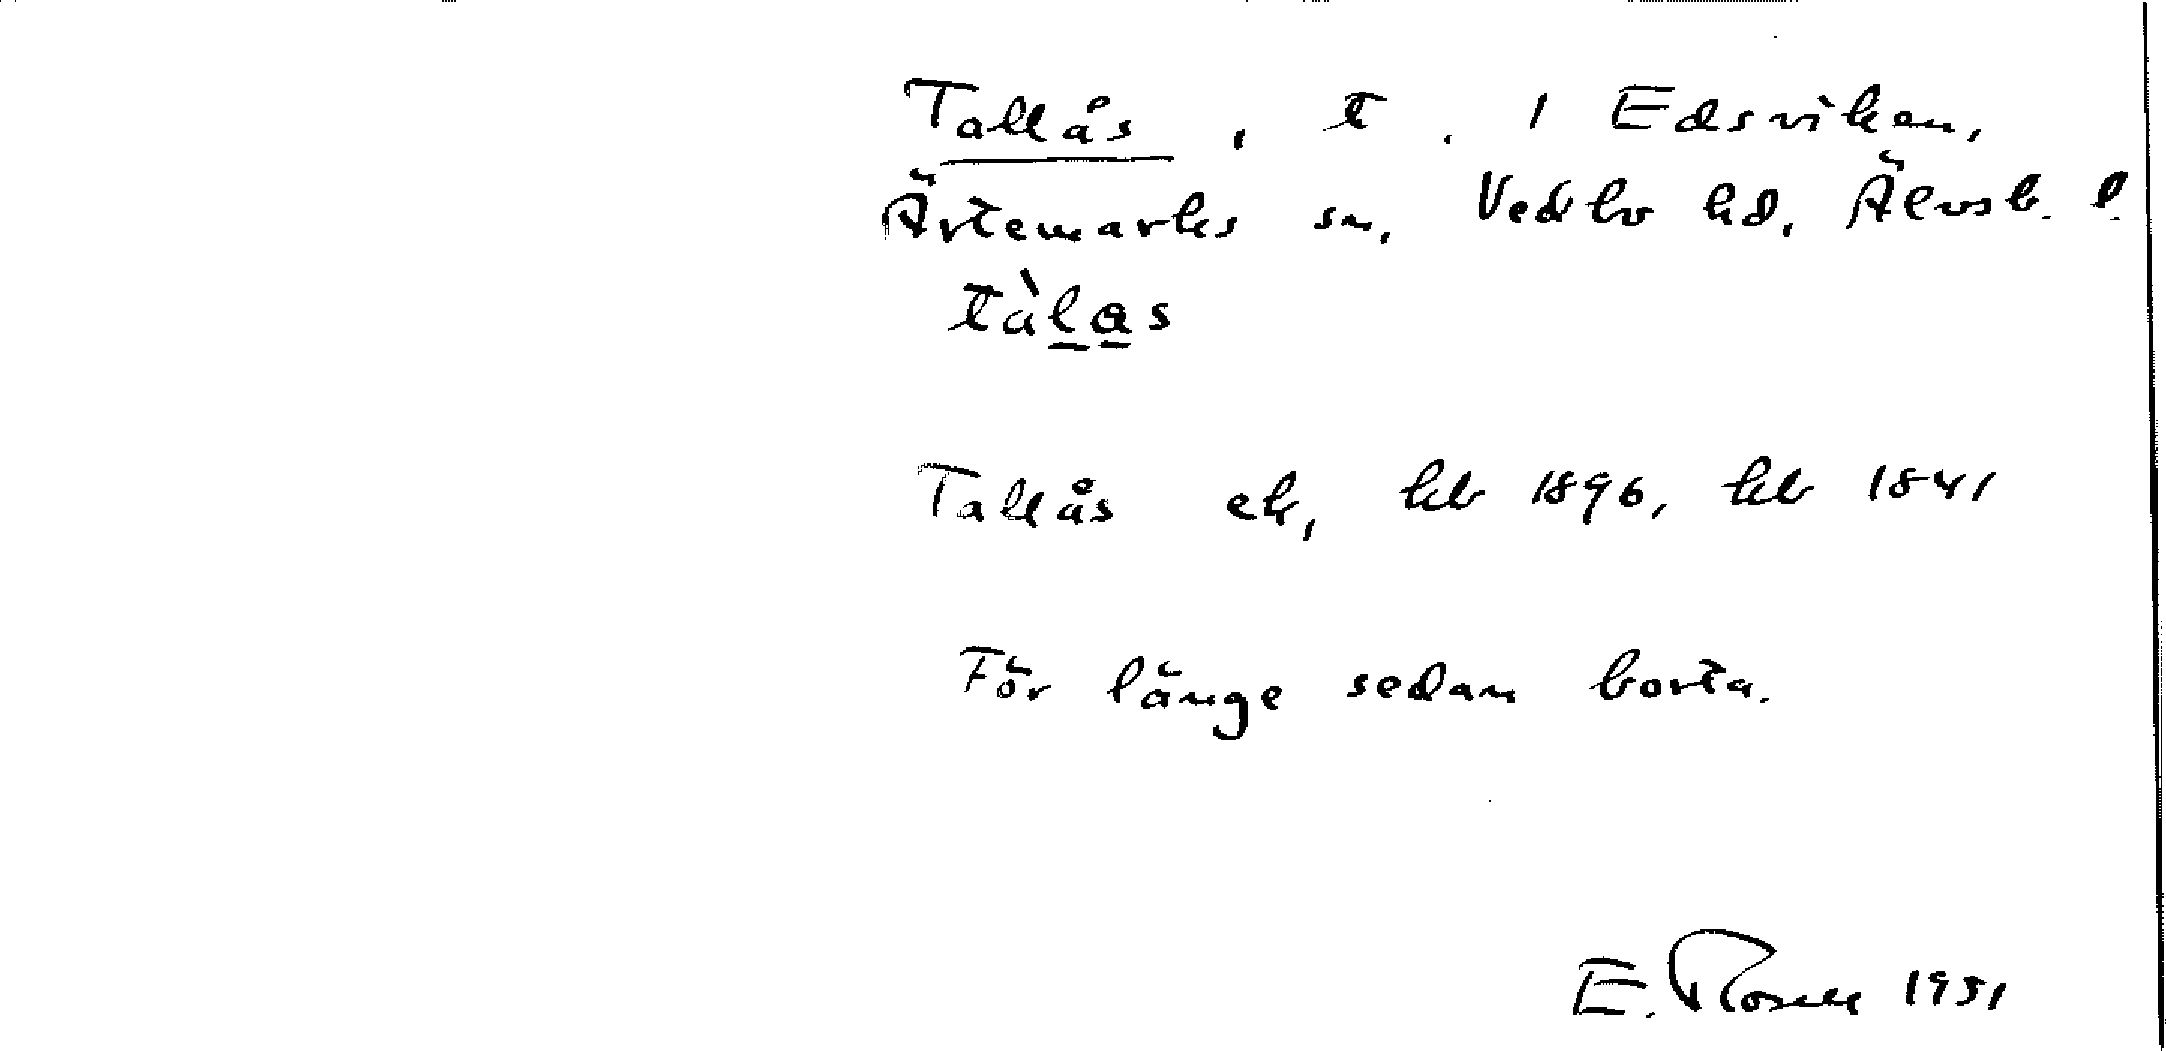 Tallås, t. 1 Edsviken,
Ärtemarks sn, Vedbo hd, Älvsb. l.
tàlas
Tallås ek, kb 1896, kb 1841
För länge sedan borta.
E. 1931